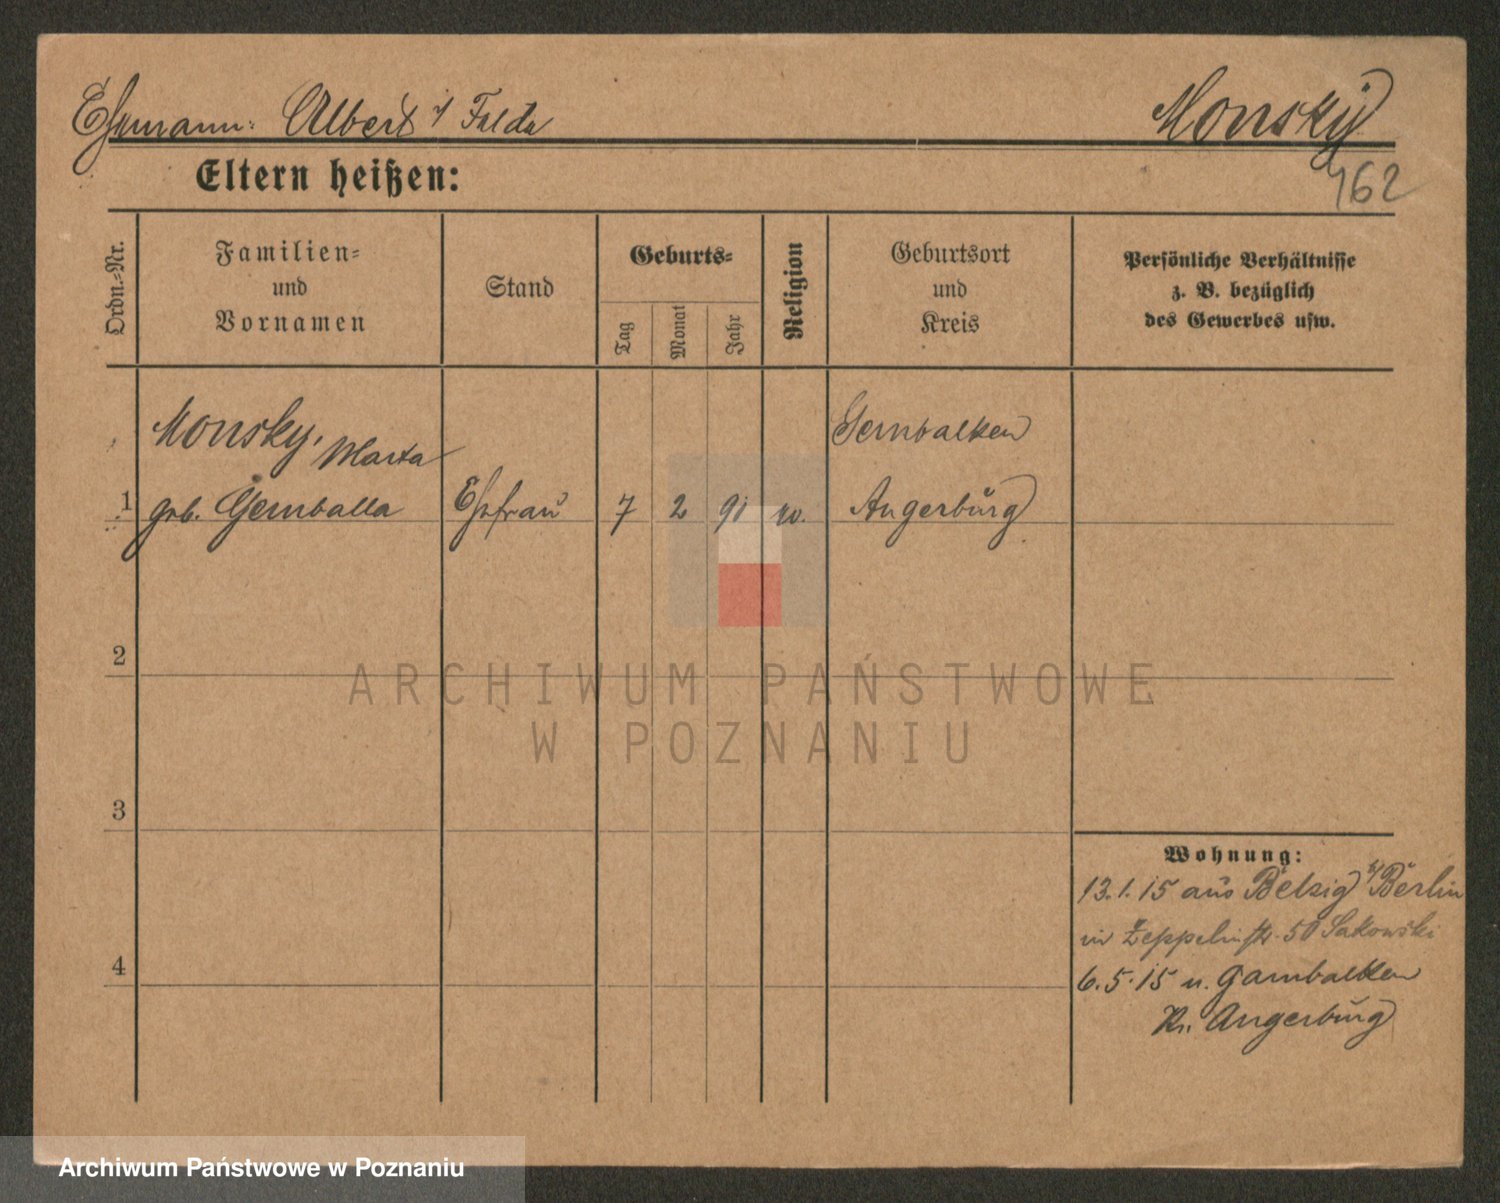 Ehemann: Albert Monsky
162
Eltern heißen:
Ordn.=Nr.
Familien=
und
Vornamen
Stand
Geburts=
Tag
Monat
Jahr
Religion
Geburtsort
und
Kreis
Persönliche Verhältnisse
z. B. bezüglich
des Gewerbes usw.
Monsky, Marta
geb. Gemballa
1
Ehefrau
7
2
91
Gembalken
Angerburg
2
3
4
Wohnung:
13.1.15 aus Belzig b/Berlin
in Zeppelinstr. 50 Sakowski
6.5.15 n. Gambalken
Kr. Angerburg
ARCHIWUM PAŃSTWOWE
W POZNANIU
Archiwum Państwowe w Poznaniu